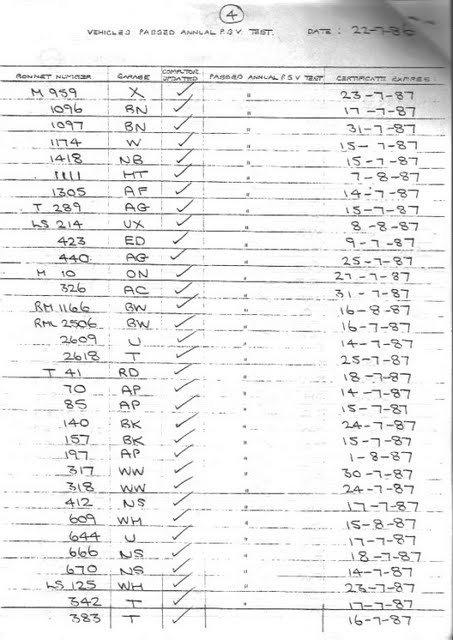 4
VEHICLES PASSED ANNUAL P.S.V TEST. DATE: 22-7-86
BONNET NUMBER GARAGE COMPUTOR UPDATED PASSED ANNUAL P.S.V TEST CERTIFICATE EXPIRES:
M 959 X ✓ " 23-7-87
1096 BN ✓ " 17-7-87
1097 BN ✓ " 31-7-87
1174 W ✓ " 15-7-87
1418 NB ✓ " 15-7-87
1111 HT ✓ " 7-8-87
1305 AF ✓ " 14-7-87
T 289 AG ✓ " 15-7-87
LS 214 UX ✓ " 8-8-87
423 ED ✓ " 9-7-87
440 AG ✓ " 25-7-87
M 10 ON ✓ " 27-7-87
326 AC ✓ " 31-7-87
RM 1166 BW ✓ " 16-8-87
RML 2506 BW ✓ " 16-7-87
2609 U ✓ " 14-7-87
2618 T ✓ " 25-7-87
T 41 RD ✓ " 18-7-87
70 AP ✓ " 14-7-87
85 AP ✓ " 15-7-87
140 BK ✓ " 24-7-87
157 BK ✓ " 15-7-87
197 AP ✓ " 1-8-87
317 WW ✓ " 30-7-87
318 WW ✓ " 24-7-87
412 NS ✓ " 17-7-87
609 WH ✓ " 15-8-87
644 U ✓ " 17-7-87
666 NS ✓ " 18-7-87
670 NS ✓ " 14-7-87
LS 125 WH ✓ " 23-7-87
342 T ✓ " 17-7-87
383 T ✓ " 16-7-87